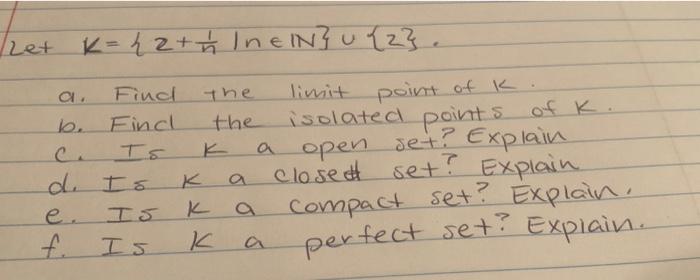 Let K = { 2 + 1/n | n ∈ ℕ } ∪ {2}.
a. Find the limit point of K.
b. Find the isolated points of K.
c. Is K a open set? Explain
d. Is K a closed set? Explain
e. Is K a compact set? Explain.
f. Is K a perfect set? Explain.